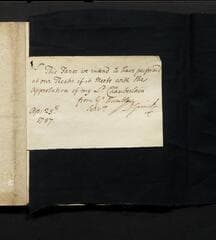 Sr This Farce we intend to have perform'd
at our Theatre if it Meets with the
approbation of my Ld Chamberlain
from yr Humble
Servt
Apr. 23d
1737.